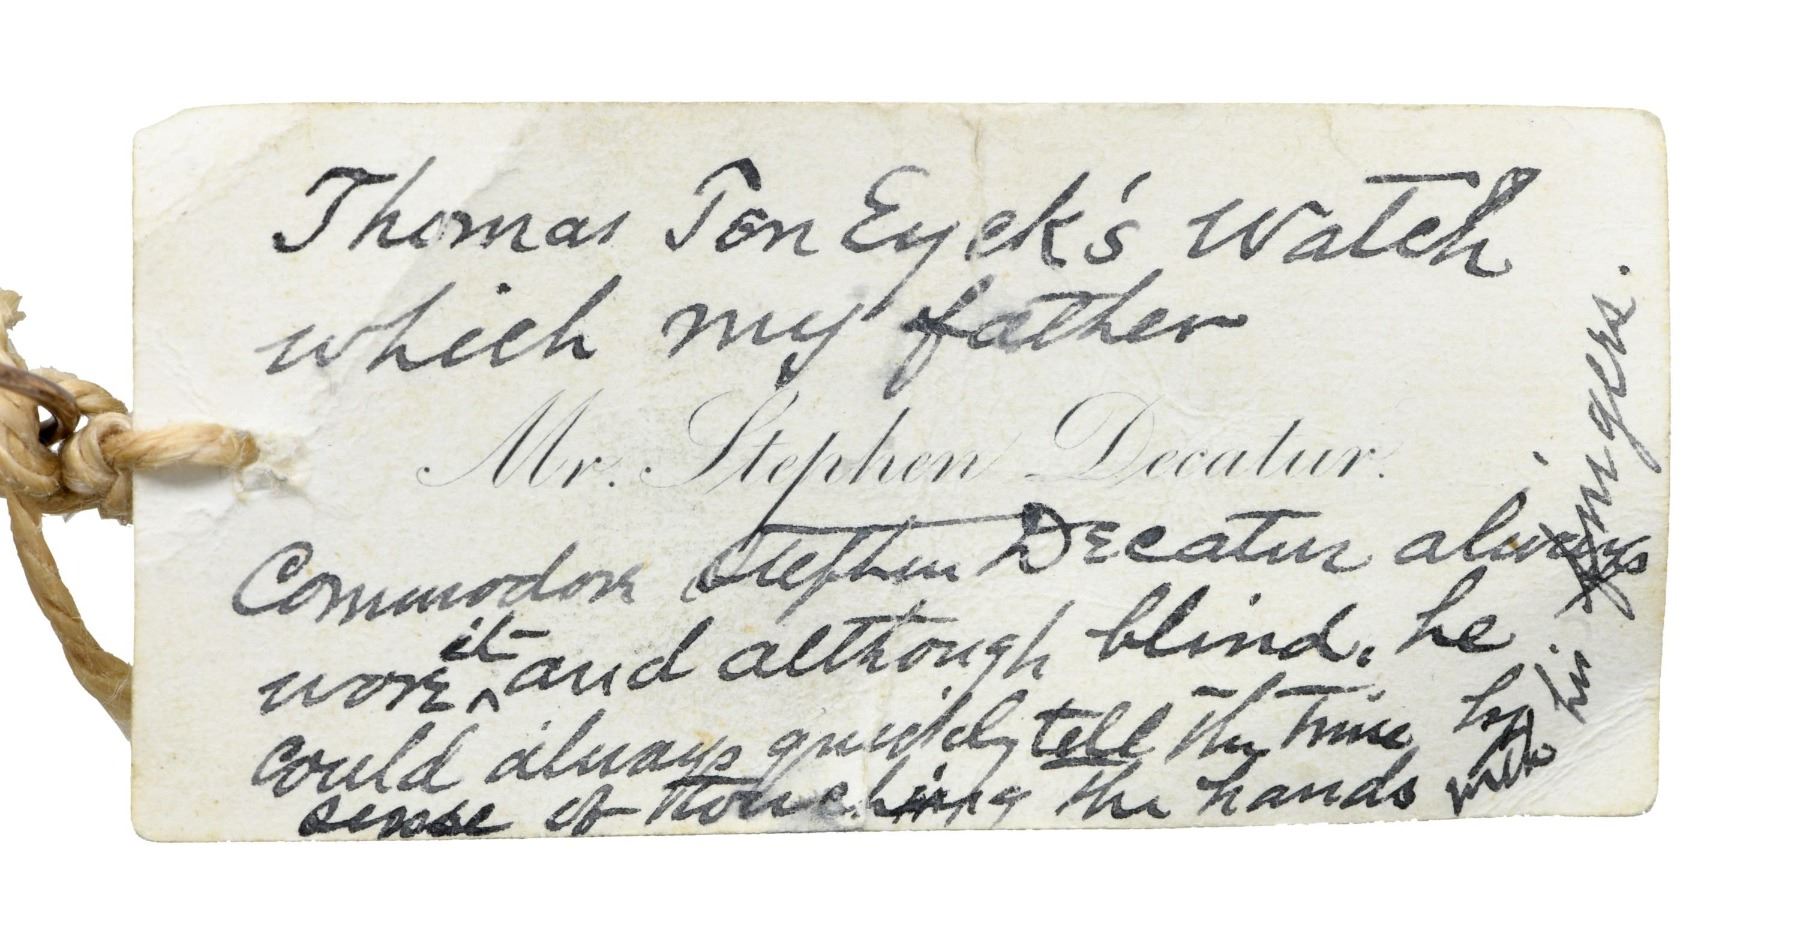 Thomas Ten Eyck's Watch
which my father
Mr. Stephen Decatur.
Commodore Stephen Decatur always
wore it and although blind, he
could always quickly tell the time by
sense of touching the hands with his fingers.